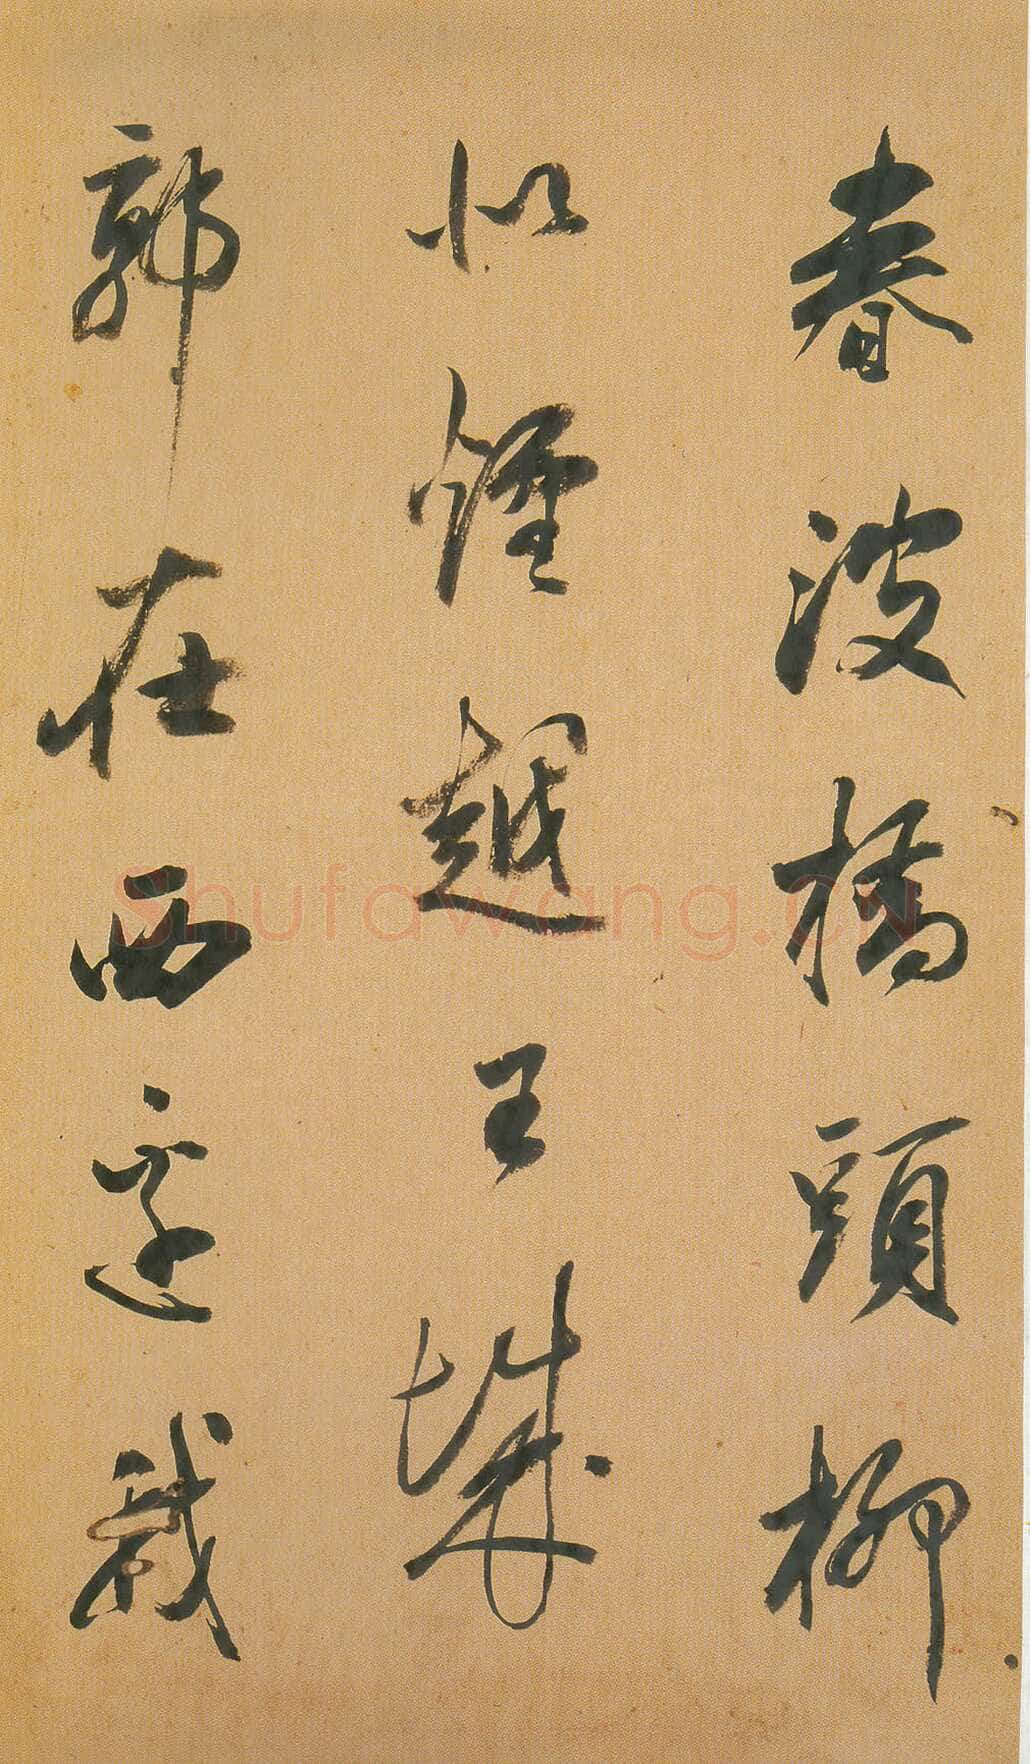 春波橋頭柳
似煙越王城
郭在西邊
Shufawang.CN